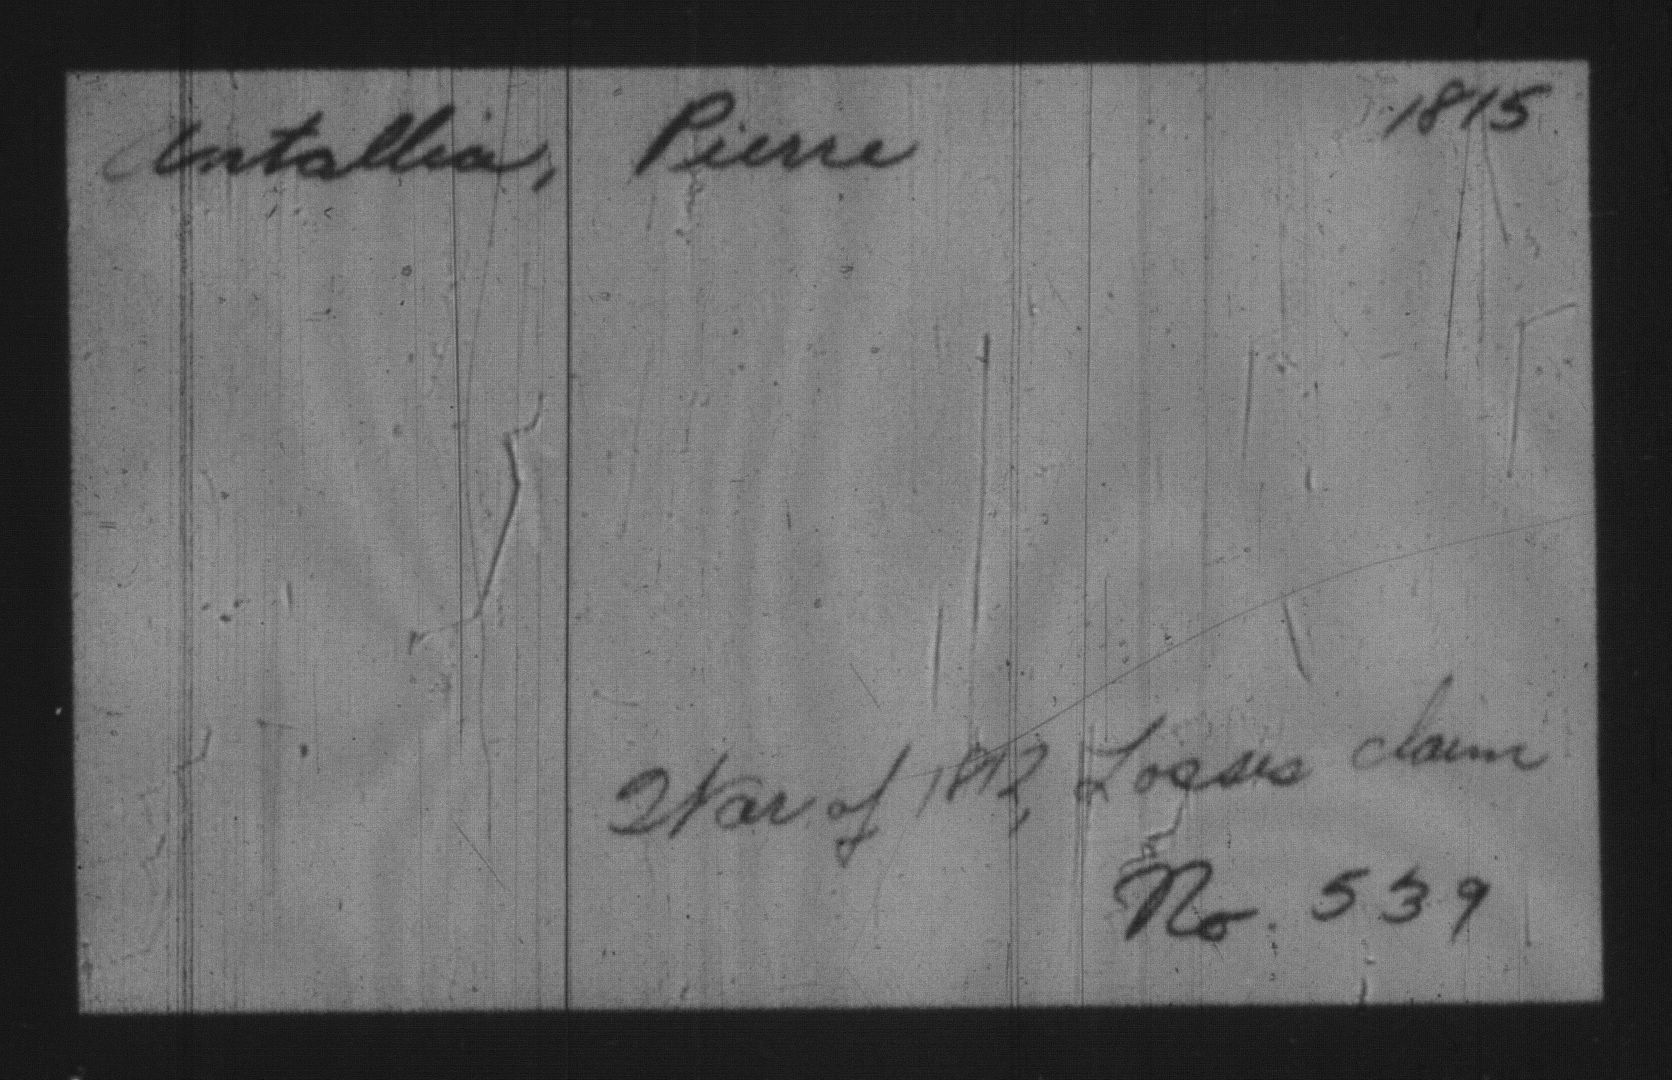 Antallia, Pierre 1815
War of 1812, Losses claim
No. 539